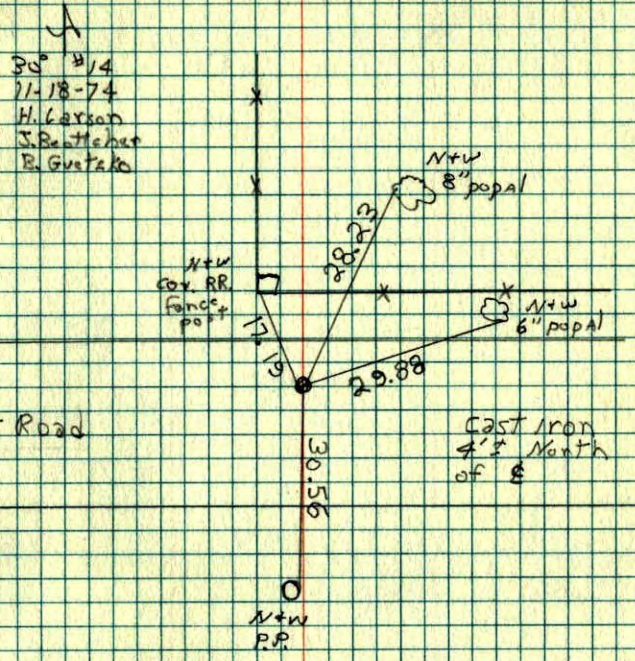 30° #14
11-18-74
H. Larson
J. Beottcher
B. Guetzko
N+W
8" popAl
28.23
N+W
cor. RR.
Fence
post
17.19
N+W
6" popAl
29.88
Road
Cast iron
4'± North
of ℄
30.56
N+W
P.P.